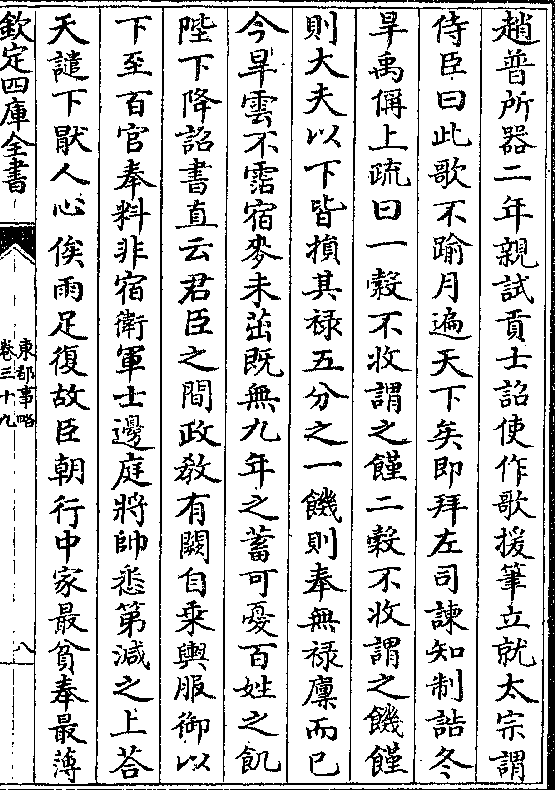 趙普所器二年親試貢士詔使作歌援筆立就太宗謂
侍臣曰此歌不踰月遍天下矣即拜左司諫知制誥冬
旱禹偁上疏曰一穀不收謂之饉二穀不收謂之饑饉
則大夫以下皆損其禄五分之一饑則奉無禄廪而已
今旱雲不霑宿麥未茁既無九年之蓄可憂百姓之飢
陛下降詔書直云君臣之間政教有闕自乘輿服御以
下至百官奉料非宿衛軍士邊庭將帥悉第減之上荅
天譴下厭人心俟雨足復故臣朝行中家最貧奉最薄
欽定四庫全書
東都事略
卷三十九
八